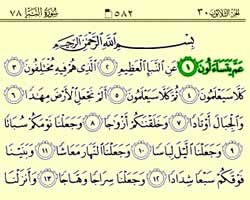 الجزء الثلاثون ٣٠ ٥٨٢ سورة النبأ ٧٨
بِسْمِ ٱللَّهِ ٱلرَّحْمَٰنِ ٱلرَّحِيمِ
عَمَّ يَتَسَآءَلُونَ ١ عَنِ ٱلنَّبَإِ ٱلْعَظِيمِ ٢ ٱلَّذِى هُمْ فِيهِ مُخْتَلِفُونَ ٣
كَلَّا سَيَعْلَمُونَ ٤ ثُمَّ كَلَّا سَيَعْلَمُونَ ٥ أَلَمْ نَجْعَلِ ٱلْأَرْضَ مِهَٰدًا ٦
وَٱلْجِبَالَ أَوْتَادًا ٧ وَخَلَقْنَٰكُمْ أَزْوَٰجًا ٨ وَجَعَلْنَا نَوْمَكُمْ سُبَاتًا
٩ وَجَعَلْنَا ٱلَّيْلَ لِبَاسًا ١٠ وَجَعَلْنَا ٱلنَّهَارَ مَعَاشًا ١١ وَبَنَيْنَا
فَوْقَكُمْ سَبْعًا شِدَادًا ١٢ وَجَعَلْنَا سِرَاجًا وَهَّاجًا ١٣ وَأَنزَلْنَا